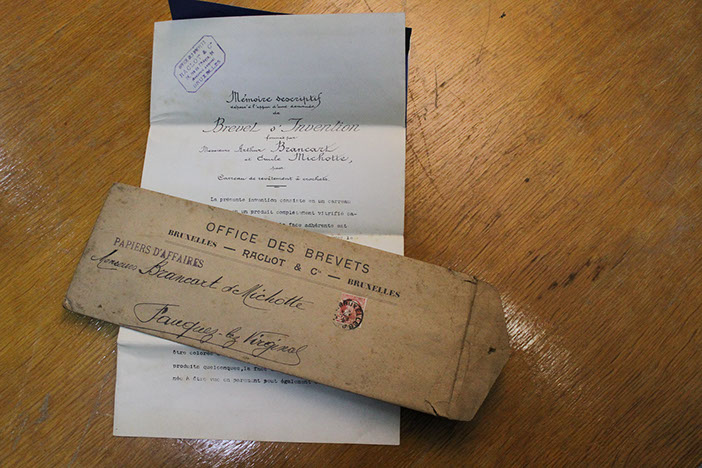 RACLOT & Cie
BRUXELLES
Mémoire descriptif
déposé à l'appui d'une demande
de
Brevet d'Invention
formée par
Messieurs Arthur Brancart
et Emile Michotte,
pour
Carreau de revêtement à crochets.
La présente invention consiste en un carreau
en un produit complètement vitrifié
face adhérente est
OFFICE DES BREVETS
BRUXELLES — RACLOT & Cie — BRUXELLES
PAPIERS D'AFFAIRES
Messieurs Brancart & Michotte
Fauquez-lez-Virginal
être colorée
produits quelconques, la face
née à être vue ou pouvant également